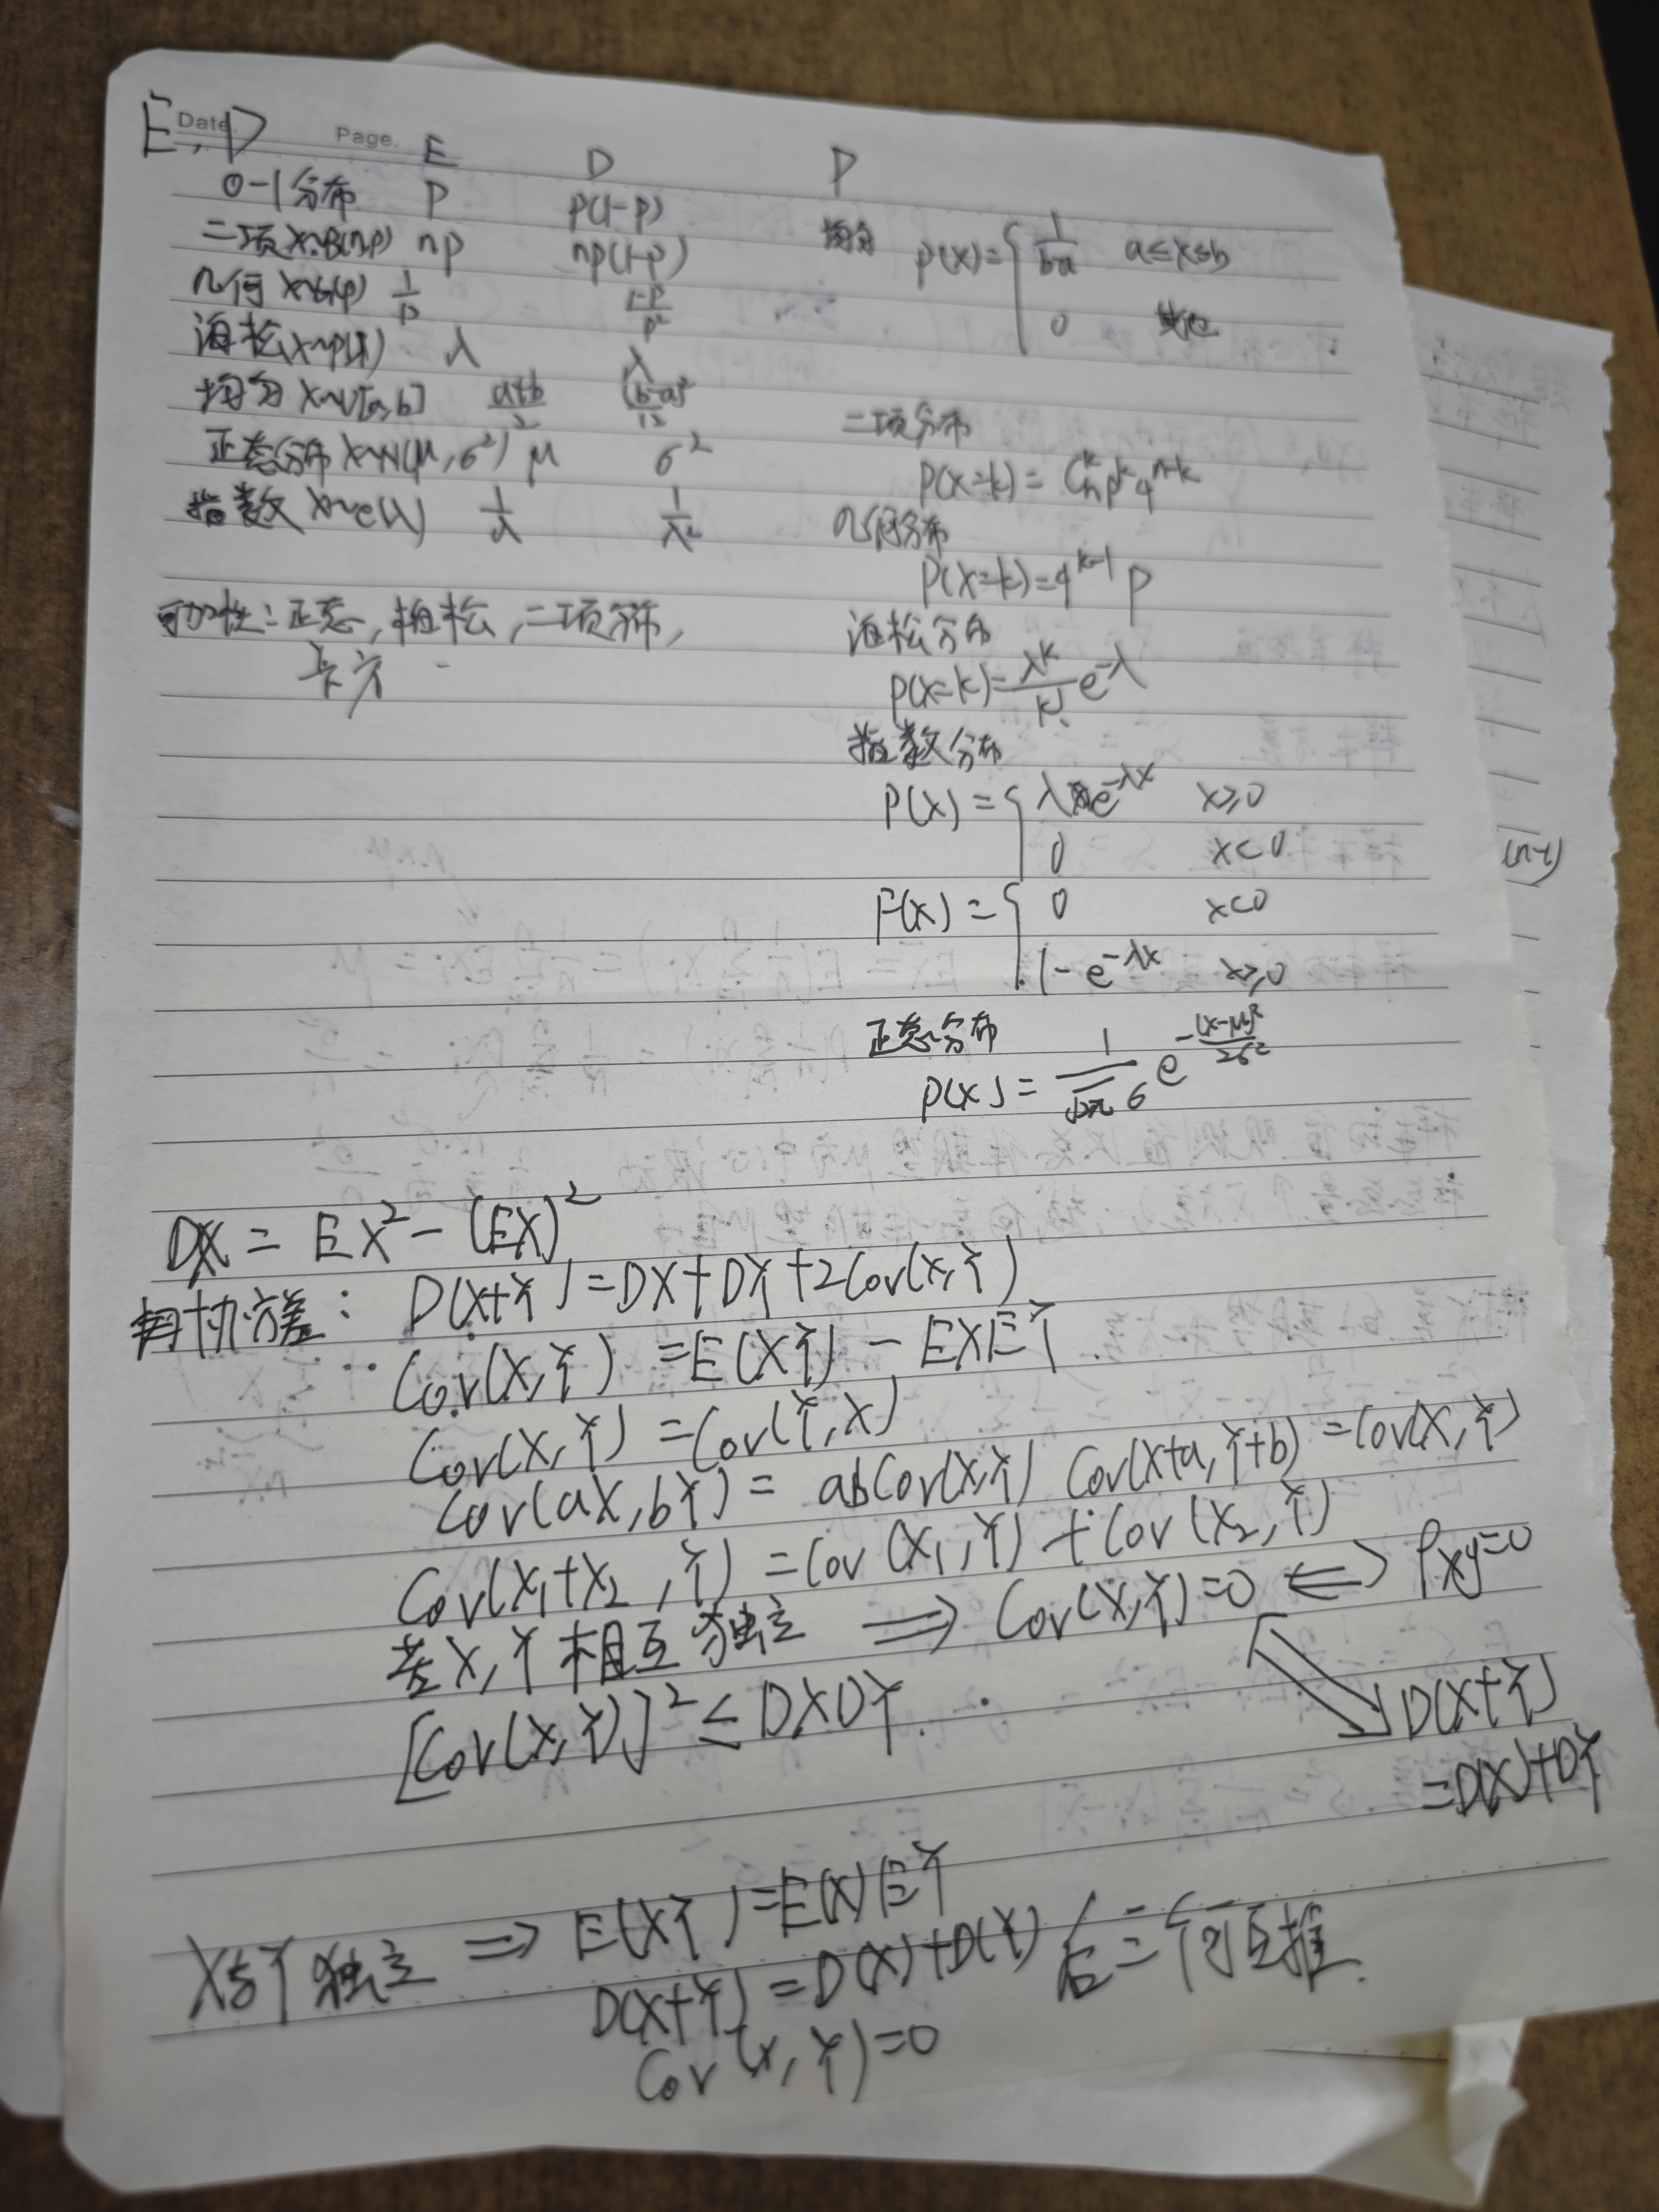 E, D
Date. Page. E D P
0-1分布 P p(1-p)
二项 X~B(n,p) np np(1-p)
几何 X~G(p) 1/p (1-p)/p²
泊松 X~P(λ) λ λ
均匀 X~U[a,b] (a+b)/2 (b-a)²/12
正态分布 X~N(μ,σ²) μ σ²
指数 X~e(λ) 1/λ 1/λ²
可加性:正态,柏松,二项分布,
卡方
均匀 p(x)={ 1/(b-a) a≤x≤b
0 其他
二项分布
P(X=k)=Cₙᵏpᵏqⁿ⁻ᵏ
几何分布
P(X=k)=qᵏ⁻¹p
泊松分布
P(X=k)=λᵏ/k! e^-λ
指数分布
P(x)={ λe^-λx x≥0
0 x<0
F(x)={ 0 x<0
1-e^-λx x≥0
正态分布
p(x)=1/(√2π σ) e^-(x-μ)²/2σ²
DX=EX²-(EX)²
用协方差: D(X+Y)=DX+DY+2Cov(X,Y)
Cov(X,Y)=E(XY)-EXEY
Cov(X,Y)=Cov(Y,X)
Cov(aX,bY)=abCov(X,Y) Cov(X+a,Y+b)=Cov(X,Y)
Cov(X₁+X₂,Y)=Cov(X₁,Y)+Cov(X₂,Y)
若X,Y相互独立 ⇒ Cov(X,Y)=0 ⇔ ρxy=0
[Cov(X,Y)]²≤DXDY.
⇔ D(X+Y)
=D(X)+DY
X与Y独立 ⇒ E(XY)=E(X)EY
D(X+Y)=D(X)+D(Y) 后三行可互推.
Cov(X,Y)=0